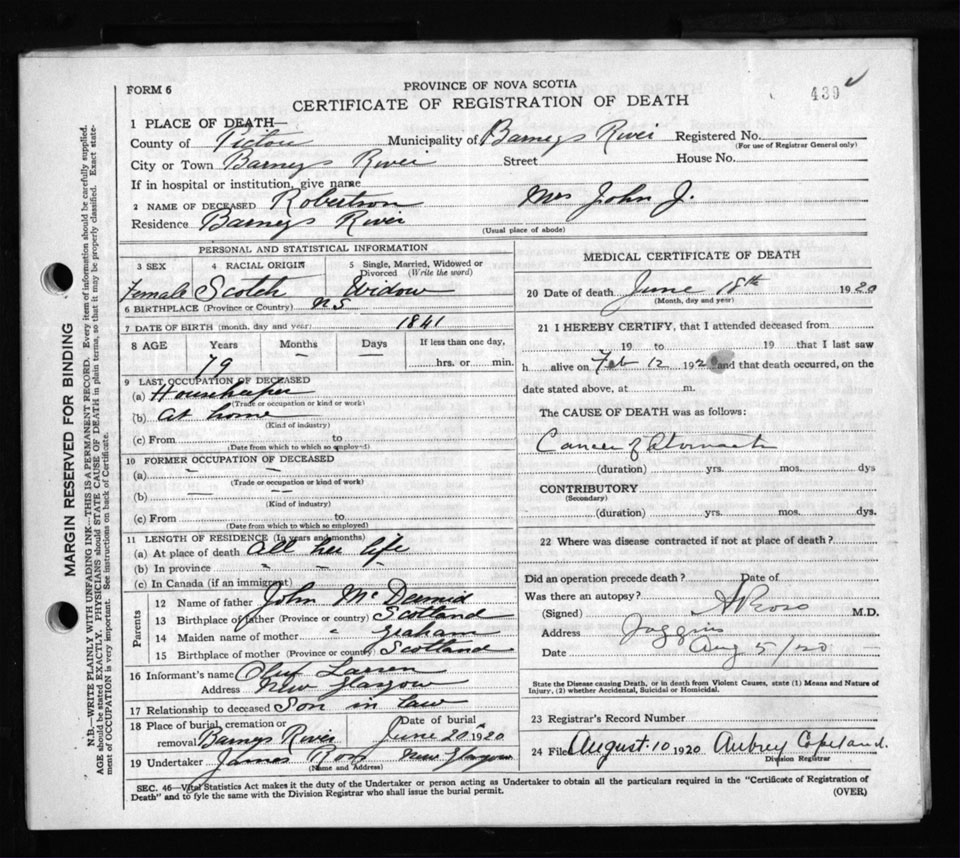 FORM 6
PROVINCE OF NOVA SCOTIA
439
CERTIFICATE OF REGISTRATION OF DEATH
1 PLACE OF DEATH—
County of Pictou Municipality of Barneys River Registered No.
(For use of Registrar General only)
City or Town Barneys River Street House No.
If in hospital or institution, give name
2 NAME OF DECEASED Robertson Mrs John J.
Residence Barneys River
(Usual place of abode)
PERSONAL AND STATISTICAL INFORMATION
3 SEX 4 RACIAL ORIGIN 5 Single, Married, Widowed or Divorced (Write the word)
Female Scotch Widow
6 BIRTHPLACE (Province or Country) N S
7 DATE OF BIRTH (month, day and year) 1841
8 AGE Years Months Days If less than one day,
79 — — hrs. or min.
9 LAST OCCUPATION OF DECEASED
(a) Housekeeper
(Trade or occupation or kind or work)
(b) At home
(Kind of industry)
(c) From to
(Date from which to which so employed)
10 FORMER OCCUPATION OF DECEASED
(a) — —
(Trade or occupation or kind of work)
(b) — —
(Kind of industry)
(c) From to
(Date from which to which so employed)
11 LENGTH OF RESIDENCE (In years and months)
(a) At place of death all her life
(b) In province " " "
(c) In Canada (if an immigrant)
Parents
12 Name of father John McDermid
13 Birthplace of father (Province or country) Scotland
14 Maiden name of mother " Graham
15 Birthplace of mother (Province or country) Scotland
16 Informant's name Oluf Larsen
Address New Glasgow
17 Relationship to deceased Son in law
18 Place of burial, cremation or removal Barneys River Date of burial June 20 1920
19 Undertaker James Ross New Glasgow
(Name and Address)
MEDICAL CERTIFICATE OF DEATH
20 Date of death June 18th 1920
(Month, day and year)
21 I HEREBY CERTIFY, that I attended deceased from
19 to 19 that I last saw
h alive on Feb 12 1920 and that death occurred, on the
date stated above, at m.
The CAUSE OF DEATH was as follows:
Cancer of Stomach
(duration) yrs. mos. dys
CONTRIBUTORY
(Secondary)
(duration) yrs. mos. dys.
22 Where was disease contracted if not at place of death?
Did an operation precede death? Date of
Was there an autopsy?
(Signed) Ross M.D.
Address Joggins
Date Aug 5/20
State the Disease causing Death, or in Death from Violent Causes, state (1) Means and Nature of
Injury, (2) whether Accidental, Suicidal or Homicidal.
23 Registrar's Record Number
24 File August 10 1920 Aubrey Copeland.
Division Registrar
SEC. 46—Vital Statistics Act makes it the duty of the Undertaker or person acting as Undertaker to obtain all the particulars required in the "Certificate of Registration of
Death" and to fyle the same with the Division Registrar who shall issue the burial permit.
(OVER)
MARGIN RESERVED FOR BINDING
N.B.—WRITE PLAINLY WITH UNFADING INK—THIS IS A PERMANENT RECORD. Every item of information should be carefully supplied.
AGE should be stated EXACTLY. PHYSICIANS should STATE CAUSE OF DEATH in plain terms, so that it may be properly classified. Exact state-
ment of OCCUPATION is very important. See instructions on back of Certificate.